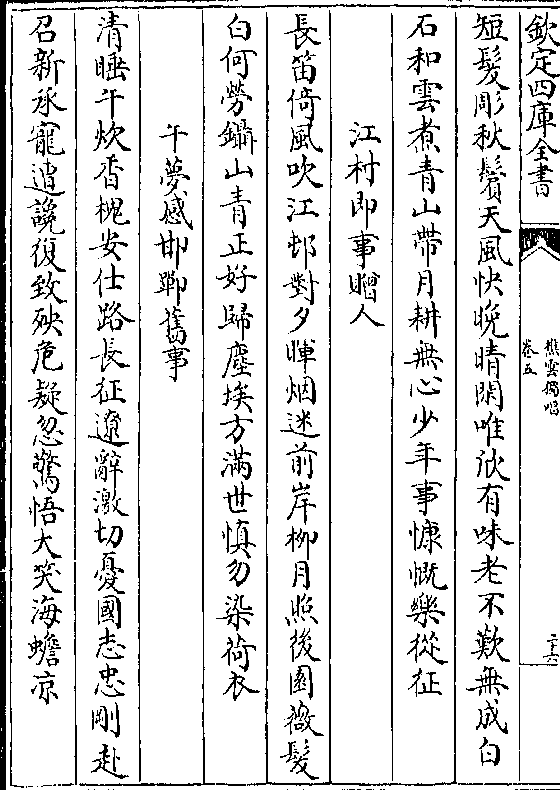 欽定四庫全書
樵雲獨唱
卷五
二十六
短髮彫秋鬢天風快晩晴閑唯欣有味老不歎無成白
石和雲煮青山帶月耕無心少年事慷慨樂從征
江村即事贈人
長笛倚風吹江邨對夕暉烟迷前岸柳月照後園薇髮
白何勞鑷山青正好歸塵埃方滿世慎勿染荷衣
午夢感邯鄲舊事
清睡午炊香槐安仕路長征遼辭激切憂國志忠剛赴
召新承寵逭讒復致殃危疑忽驚悟大笑海蟾凉